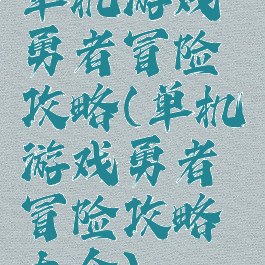 单机游戏
勇者冒险
攻略(单机
游戏勇者
冒险攻略
大全)